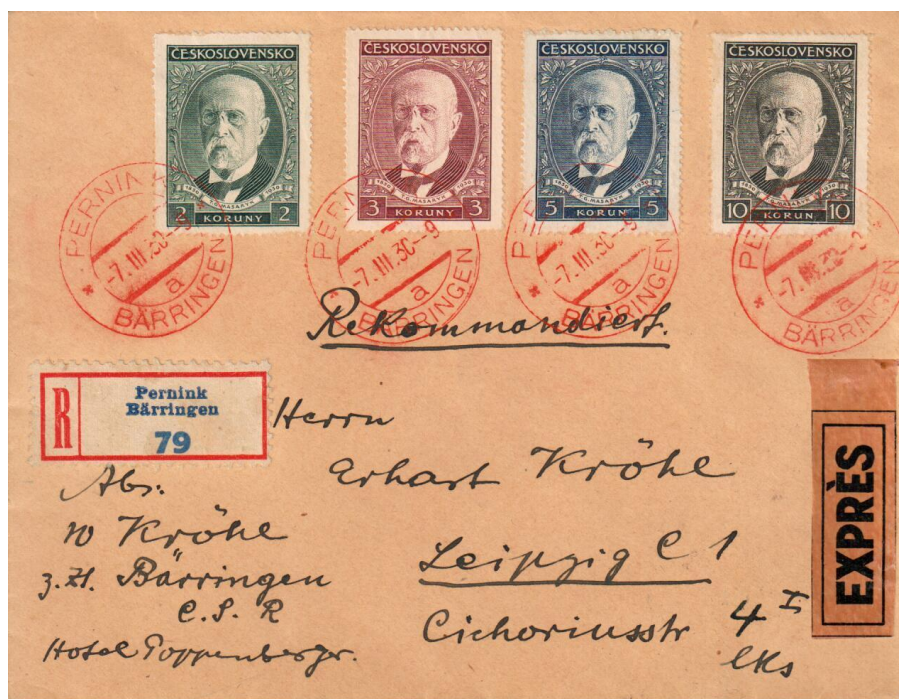 ČESKOSLOVENSKO
1850 1930
T.G. MASARYK
2 KORUNY 2
ČESKOSLOVENSKO
1850 1930
T.G. MASARYK
3 KORUNY 3
ČESKOSLOVENSKO
1850 1930
T.G. MASARYK
5 KORUNY 5
ČESKOSLOVENSKO
1850 1930
T.G. MASARYK
10 KORUN 10
PERNINK
-7.III.30--9
a
BÄRRINGEN
PERNINK
-7.III.30--9
a
BÄRRINGEN
PE
-7.III.30--9
a
BÄRRINGEN
PERNINK
-7.III.30--9
a
BÄRRINGEN
Rekommandiert.
R
Pernink
Bärringen
79
Herrn
Erhart Kröhl
Leipzig C 1
Cichoriusstr 4 I
lks
Abs:
W Kröhl
z. Zt. Bärringen
C. S. R
Hotel
EXPRÈS